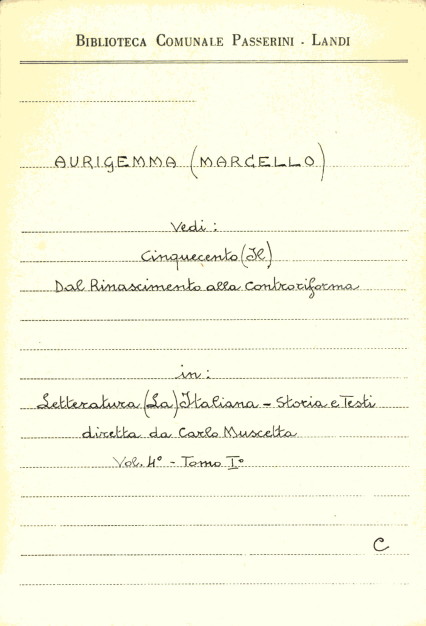 BIBLIOTECA COMUNALE PASSERINI - LANDI
AURIGEMMA (MARCELLO)
Vedi:
Cinquecento (Il)
Dal Rinascimento alla Controriforma
in:
Letteratura (La) Italiana - Storia e Testi
diretta da Carlo Muscetta
Vol. 4° - Tomo I°
C